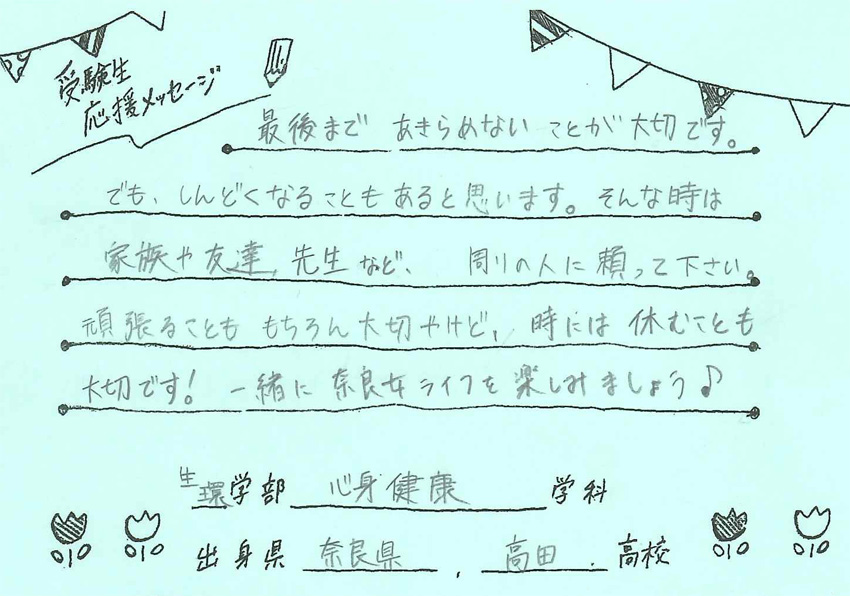 受験生
応援メッセージ
最後まで あきらめない ことが 大切です。
でも、しんどくなることもあると思います。そんな時は
家族や友達、先生など、 周りの人に頼って下さい。
頑張ることも もちろん大切やけど、時には 休むことも
大切です! 一緒に 奈良女ライフを 楽しみましょう♪
生環学部 心身健康 学科
出身県 奈良県 , 高田 高校